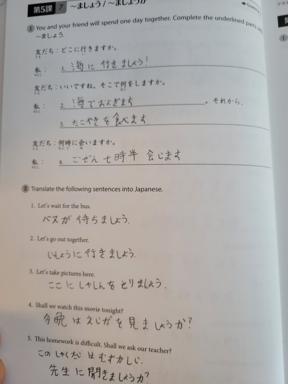 第5課 7 ～ましょう/～ましょうか
Ⅰ You and your friend will spend one day together. Complete the underlined parts
～ましょう.
友だち：どこに行きますか。
私： 1. 海に行きましょう！
友だち：いいですね。そこで何をしますか。
私： 2. 海でおよぎます 。それから、
3. たこやきを食べます
友だち：何時に会いますか。
私： 4. ごぜん七時半 会います
Ⅱ Translate the following sentences into Japanese.
1. Let's wait for the bus.
バスが待ちましょう.
2. Let's go out together.
いっしょうに行きましょう.
3. Let's take pictures here.
ここにしゃしんをとりましょう.
4. Shall we watch this movie tonight?
今晩はえいがを見ましょうか?
5. This homework is difficult. Shall we ask our teacher?
このしゅくだいはむずかしい.
先生に聞きましょうか?